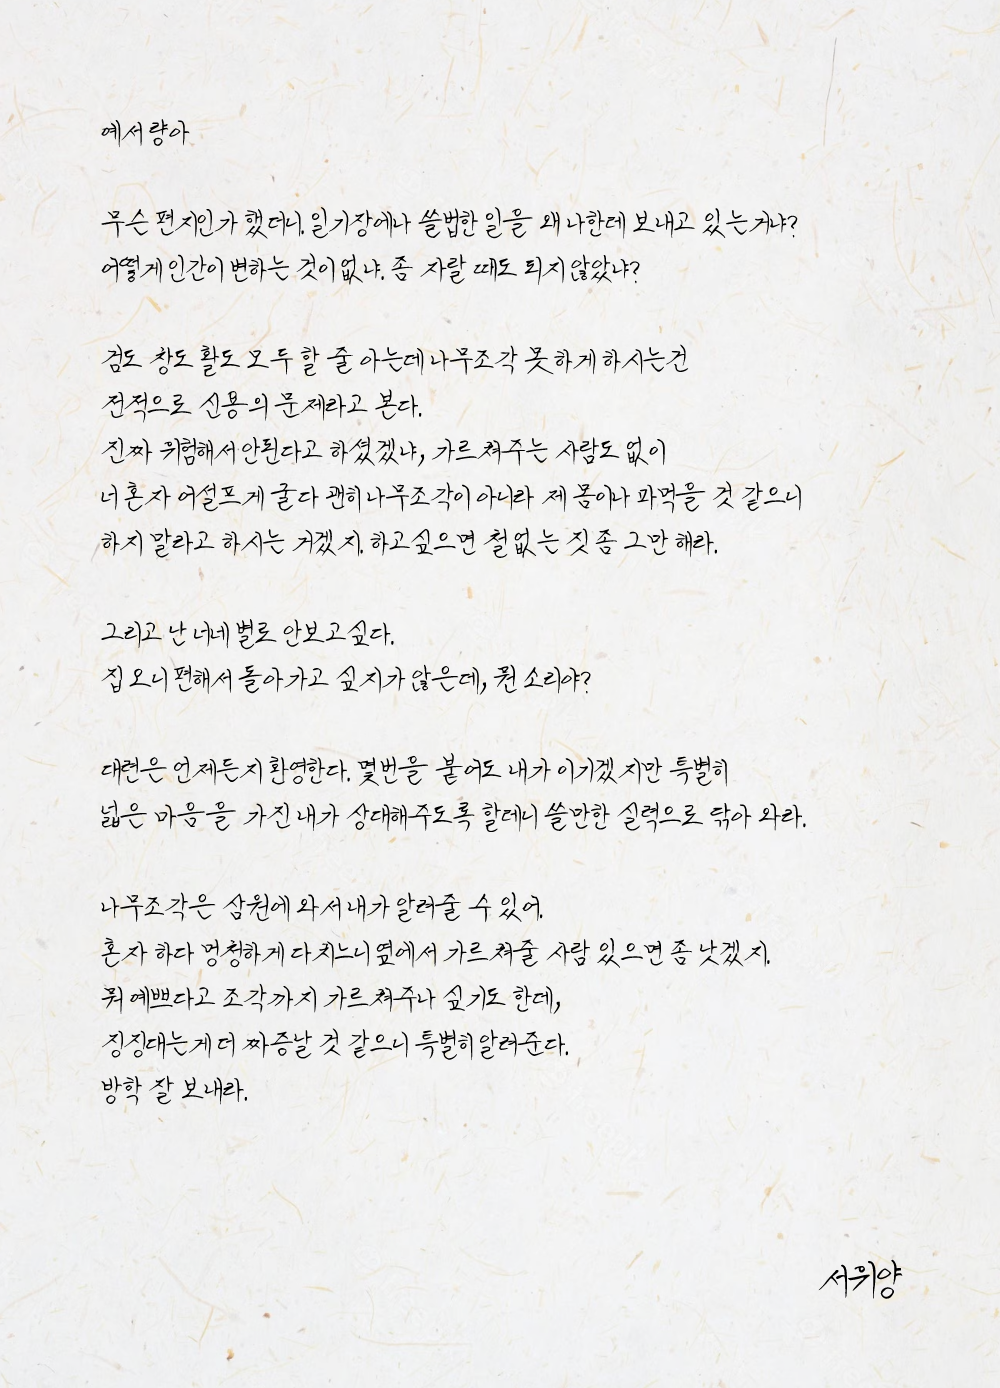 예서량아
무슨 편지인가 했더니, 일기장에나 쓸법한 일을 왜 나한테 보내고 있는거냐?
어떻게 인간이 변하는 것이 없냐. 좀 자랄 때도 되지 않았냐?
검도 창도 활도 모두 할 줄 아는데 나무조각 못하게 하시는건
전적으로 신용의 문제라고 본다.
진짜 위험해서 안된다고 하셨겠냐, 가르쳐주는 사람도 없이
너 혼자 어설프게 굴다 괜히 나무조각이 아니라 제 몸이나 파먹을 것 같으니
하지 말라고 하시는 거겠지. 하고싶으면 철없는 짓 좀 그만 해라.
그리고 난 너네 별로 안보고싶다.
집 오니 편해서 돌아가고 싶지가 않은데, 뭔 소리야?
대련은 언제든지 환영한다. 몇번을 붙어도 내가 이기겠지만 특별히
넓은 마음을 가진 내가 상대해주도록 할테니 쓸만한 실력으로 닦아 와라.
나무조각은 삼원에 와서 내가 알려줄 수 있어.
혼자 하다 멍청하게 다치느니 옆에서 가르쳐줄 사람 있으면 좀 낫겠지.
뭐 예쁘다고 조각까지 가르쳐주나 싶기도 한데,
징징대는게 더 짜증날 것 같으니 특별히 알려준다.
방학 잘 보내라.
서휘양